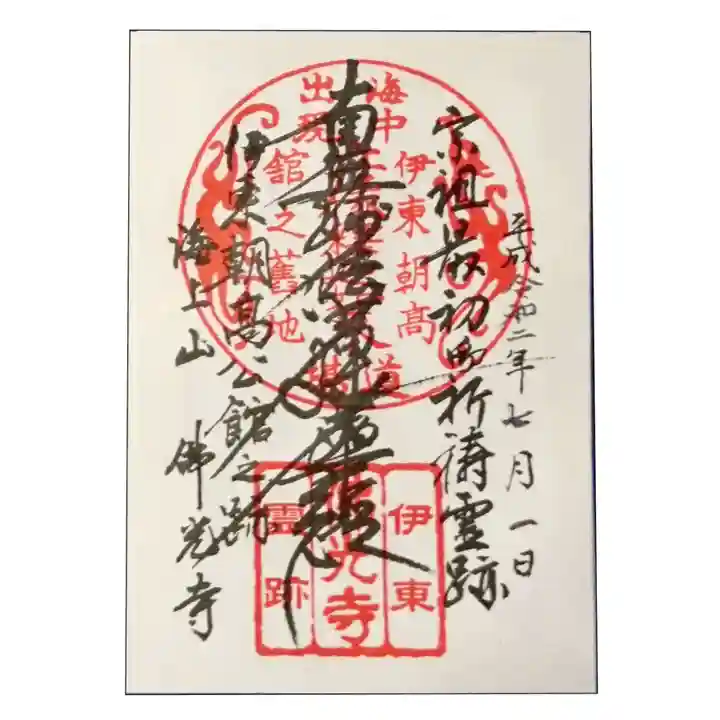 平成令和二年七月一日
宗祖最初御祈祷霊跡
南無妙法蓮華経
伊東朝高公館之跡
海上山 佛光寺
海中
出現
伊東朝高
舘之舊地
伊東
佛光寺
霊跡